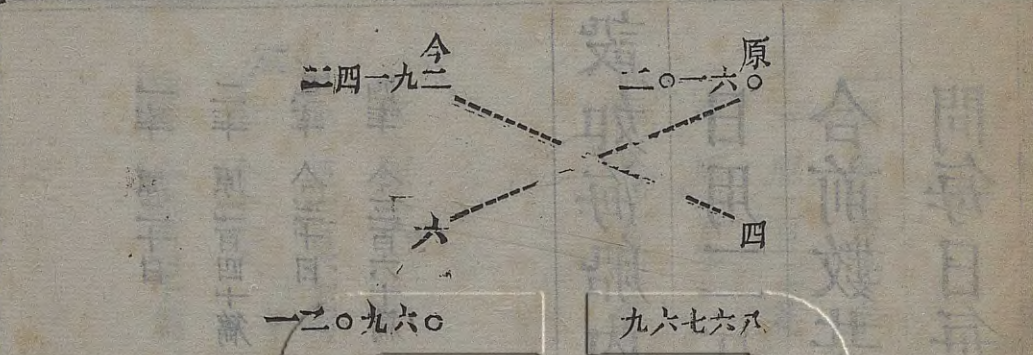 今 原
二四一九二 二〇一六〇
六 四
一二〇九六〇 九六七六八